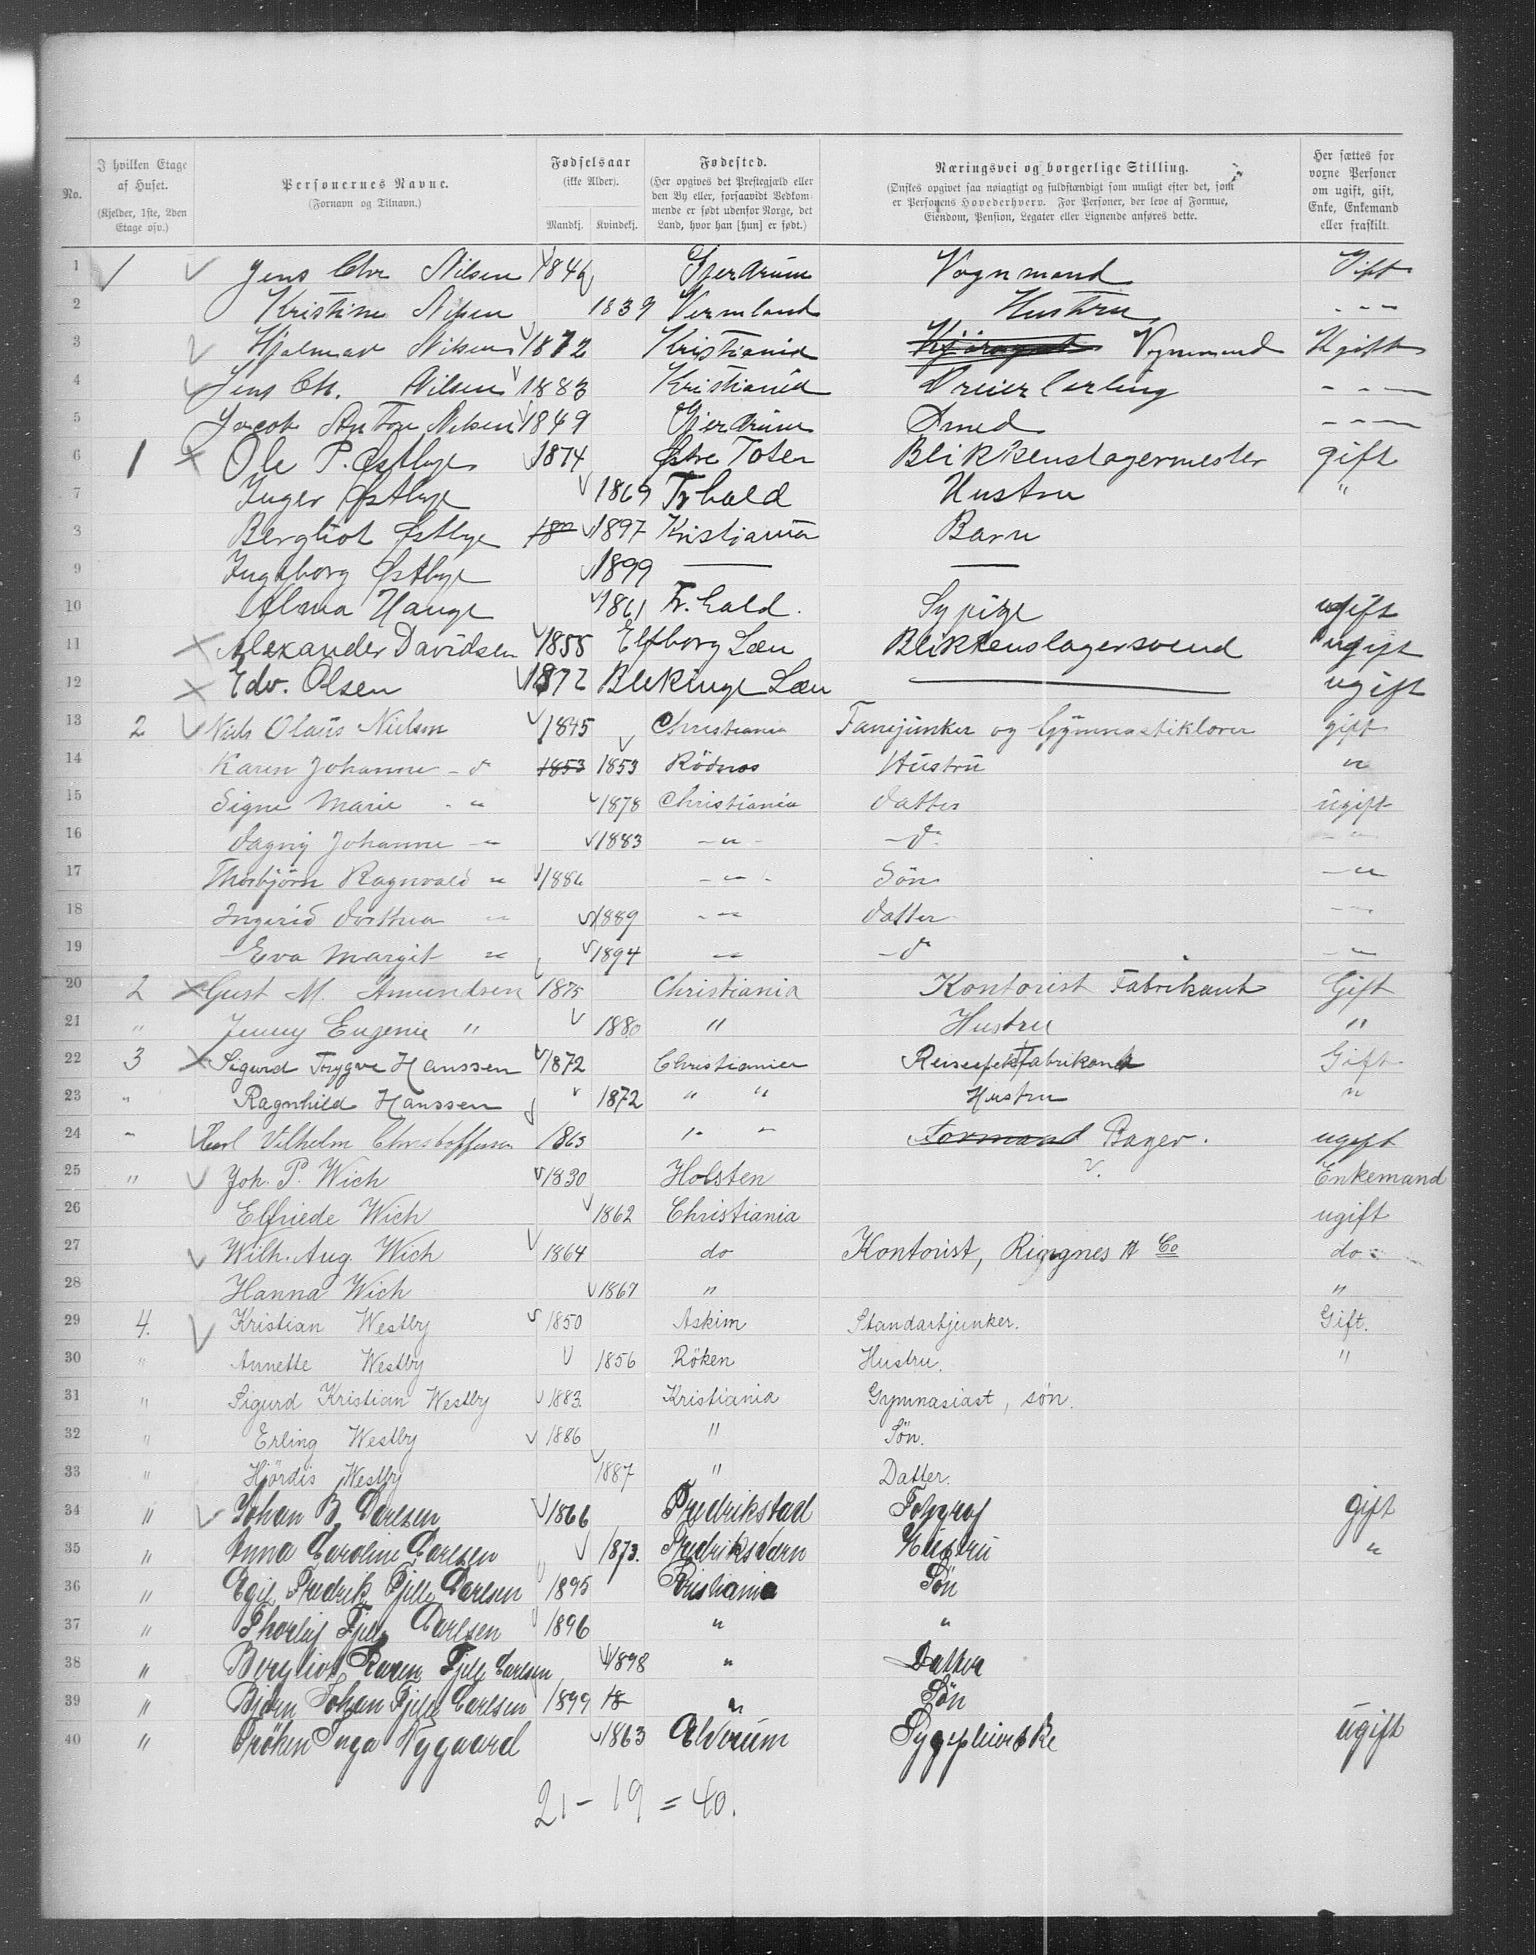 No.
I hvilken Etage af Huset. (Kjelder, 1ste, 2den Etage osv.)
Personernes Navne. (Fornavn og Tilnavn.)
Fødselsaar (ikke Alder). Mandkj. Kvindekj.
Fødested. (Her opgives det Prestegjæld eller den By eller, forsaavidt Vedkommende er født udenfor Norge, det Land, hvor han [hun] er født.)
Næringsvei og borgerlige Stilling. (Ønskes opgivet saa nøiagtigt og fuldstændigt som muligt efter det, som er Personens Hovederhverv. For Personer, der leve af Formue, Eiendom, Pension, Legater eller Lignende anføres dette.
Her sættes for voxne Personer om ugift, gift, Enke, Enkemand eller fraskilt.
1 Jens Chr Nilsen 1846 Gjerdrum Vognmand Gift
2 Kristine Nilsen 1839 Vermland Hustru - - -
3 Hjalmar Nilsen 1872 Kristiania Vognmand Ugift
4 Jens Ch. Nilsen 1883 Kristiania Dreierlærling - - -
5 Jacob Anton Nilsen 1849 Gjerdrum Smed - - -
6 1 Ole P. Østbye 1874 Østre Toten Blikkenslagermester gift
7 Inger Østbye 1869 Fr.hald Hustru "
8 Bergliot Østbye 18 1897 Kristiania Barn
9 Ingeborg Østbye 1899 — —
10 Alma Hauge 1861 Fr.hald. Sypige ugift
11 Alexander Davidsen 1855 Elfborg Læn Blikkenslagersvend ugift
12 Edv. Olsen 1872 Blekinge Læn — ugift
13 2 Niels Olaus Nielsen 1845 Christiania Fanejunker og Gymnastiklærer gift
14 Karen Johanne - d 1853 1853 Rödnes Hustru "
15 Signe Marie - " 1878 Christiania Datter ugift
16 Dagny Johanne - " 1883 - " - - d - "
17 Thorbjörn Ragnvald " 1886 - " - Sön - "
18 Ingerid Dorthea " 1889 - " Datter - "
19 Eva Margit " 1894 " - d "
20 2 Gust M. Amundsen 1875 Christiania Kontorist Fabrikant Gift
21 " Jenny Eugenie " 1880 " Hustru "
22 3 Sigurd Trygve Hanssen 1872 Christiania Reiseefektfabrikant Gift
23 " Ragnhild Hanssen 1872 " " Hustru "
24 " Karl Vilhelm Christoffersen 1863 " " Formand Bager. ugift
25 " Joh. P. Wich 1830 Holsten Enkemand
26 Elfriede Wich 1862 Christiania ugift
27 Wilh. Aug Wich 1864 do Kontorist, Ringnes & Co do
28 Hanna Wich 1867 " "
29 4. Kristian Westby 1850 Askim Standartjunker. Gift.
30 " Annette Westby 1856 Röken Hustru. "
31 " Sigurd Kristian Westby 1883. Kristiania Gymnasiast, sön.
32 " Erling Westby 1886 " Sön.
33 " Hjördis Westby 1887 " Datter.
34 " Johan B. Carlsen 1866 Fredrikstad gift
35 " Anna Caroline Carlsen 1873. Fredriksværn Hustru "
36 " Egil Fredrik Fjelle Carlsen 1895 Kristiania Sön
37 " Thorleif Fjelle Carlsen 1896 " "
38 " Bergliot Karen Fjelle Carlsen 1898 " Datter
39 " Björn Johan Fjelle Carlsen 1899 18 " Sön
40 " Fröken Inga Nygaard 1863 Elverum Sygepleierske ugift
21 - 19 = 40.